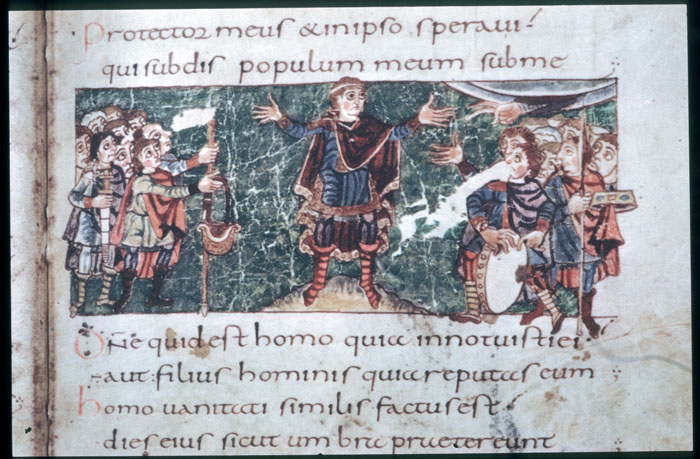 Protector meus & in ipso speraui
qui subdis populum meum sub me
Dñe quid est homo quia innotuisti ei
aut filius hominis quia reputas eum
homo uanitati similis factus est
dies eius sicut umbra praetereunt